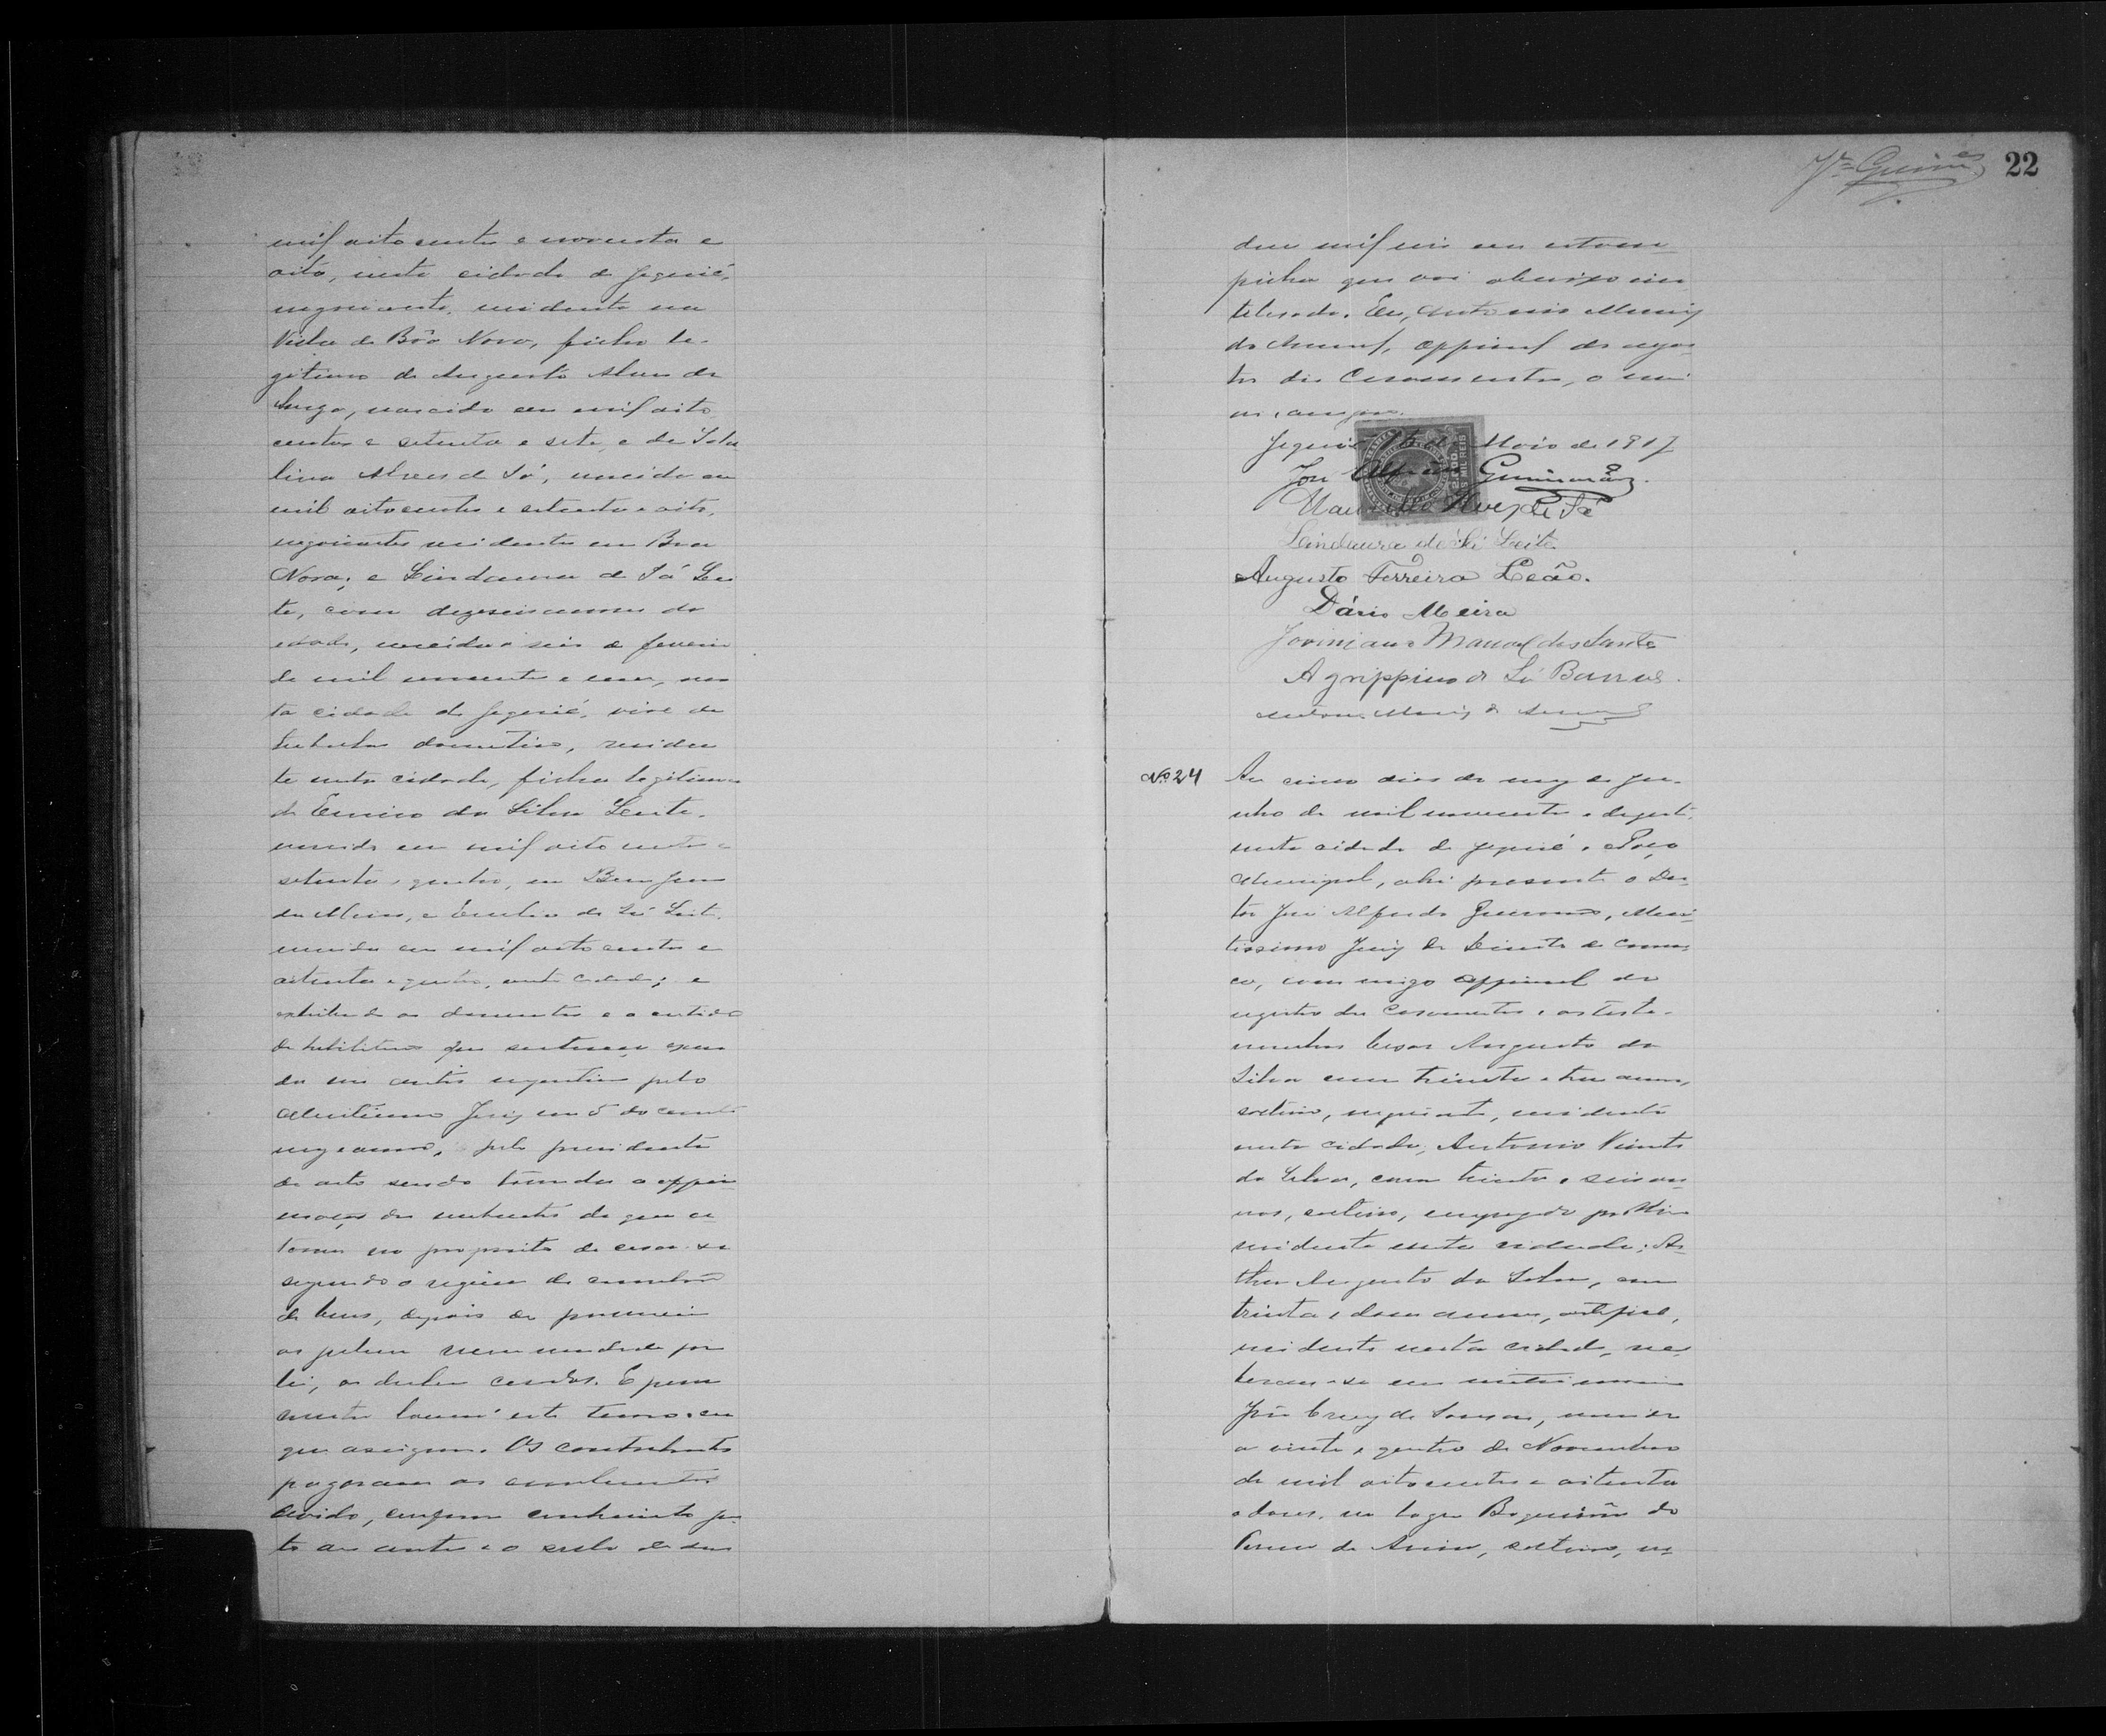 mil oitocentos e noventa e
oito, nesta cidade de Jequié,
negociante, residente na
Villa de Bôa Nova, filho le-
gitimo de Augusto Alves de
Souza, nascido em mil oito
centos e setenta e sete, e de
lina Alves de Sá, nascida em
mil oitocentos e setenta e oito,
negociantes residentes em Boa
Nova; e Lindaura de Sá Lei
te, com dezeseis annos de
edade, nascida a seis de fevereiro
de mil novecentos e um, nes
ta cidade de Jequié, vive de
trabalhos domesticos, residen
te nesta cidade, filha legitima
de Eurico da Silva Leite,
nascido em mil oitocentos e
setenta e quatro, em Bom Jesus
da Meira, e Emilia de Sá Leite,
nascida em mil oitocentos e
oitenta e quatro, nesta cidade; e
exhibindo os documentos e a certidão
de habilitação
da nos autos respectivos pelo
Meritissimo Juiz em 5 do corrente
mez e anno, pelo presidente
do acto sendo tomada a affir
mação dos nubentes de que
no proposito de casar-se
segundo o regimen da communhão
de bens, depois de pronunciar
as palavras recommendadas por
lei, os declarou casados. E para
constar lavrei este termo em
que assignam. Os contrahentes
pagaram os emolumentos
devidos, conforme conhecimento jun
to aos autos e o sello de dous
22
dous mil reis em estam
pilha que vai abaixo inu
telisada. Eu, Antonio Muniz
do Amaral, official do regis
tro dos Casamentos, o
e assigno.
Jequié 15 de Maio de 1917
José Alfredo Guimarães.
Alves de Sá
Lindaura de Sá Leite
Augusto Ferreira Leão.
Dário Meira
Joviniano Manoel dos Santos
Agrippino de Sá Barros.
Antonio Muniz do Amaral
Nº 24 Aos cinco dias do mez de Ju-
nho de mil novecentos e dezesete,
nesta cidade de Jequié e Paço
Municipal, ahi presente o Dou
tor José Alfredo Guimarães, Meri
tissimo Juiz de Direito da Comar
ca, commigo official do
registro dos Casamentos e as teste-
munhas Cesar Augusto da
Silva com trinta e tres annos,
solteiro, negociante, residente
nesta cidade; Antonio Vicente
da Silva, com trinta e seis an
nos, solteiro, empregado publico
residente nesta cidade; Ar
thur Augusto da Silva, com
trinta e dous annos, artifice,
residente nesta cidade, re
ceberam-se em matrimonio
José Cruz de Souza, nascido
a vinte e quatro de Novembro
de mil oitocentos e oitenta
e dous, no logar Boqueirão do
solteiro, ne